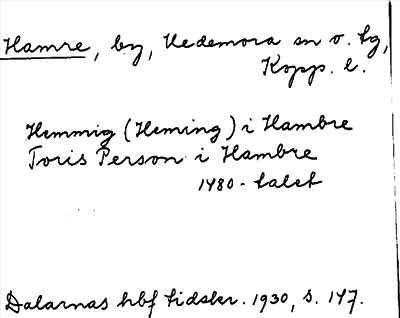 Hamre, by, Hedemora sn o. tg,
Kopp. l.
Hemmig (Heming) i Hambre
Toris Person i Hambre
1480-talet
Dalarnas hbf tidskr. 1930, s. 147.